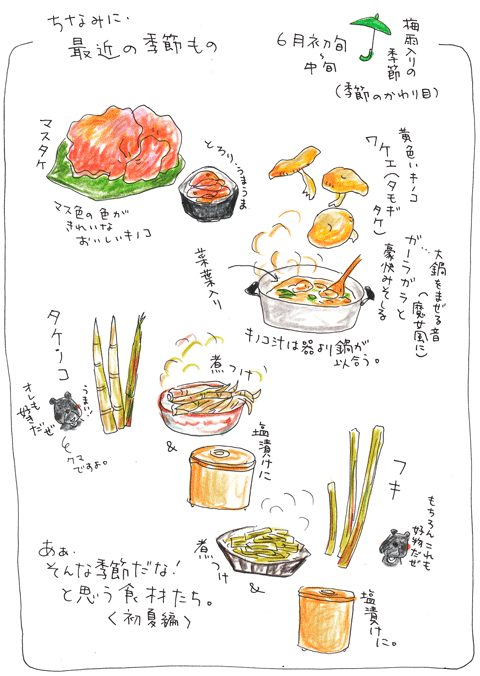 ちなみに、
最近の季節もの
6月初旬
〜
中旬
梅雨入りの
季節
(季節のかわり目)
マスタケ
とろり、うまうま
マス色の色が
きれいな
おいしいキノコ
黄色いキノコ
ワケエ(タモギ
タケ)
大鍋をまぜる音
(魔女風に)
ガーラガラと
豪快みそしる
菜葉入り
キノコ汁は器より鍋が
似合う。
タケノコ
うまい!
オレも
好きだぜ
クマ
ですよ。
煮つけ
&
塩漬けに
フキ
もちろんこれも
好物だぜ
煮つけ
&
塩漬けに。
あぁ、
そんな季節だな!
と思う食材たち。
〈初夏編〉